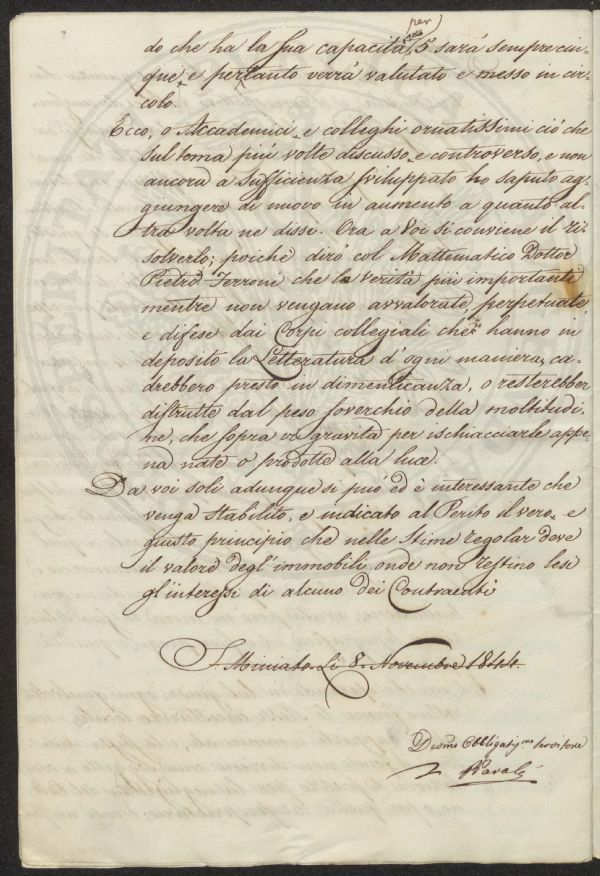 do che ha la sua capacità per 5. sarà sempre cin-
que, e pertanto verrà valutato e messo in cir-
colo.
Ecco, o Accademici, e colleghi ornatissimi ciò che
sul tema più volte discusso, e controverso, e non
ancora a sufficienza sviluppato ho saputo ag-
giungere di nuovo in aumento a quanto al-
tra volta ne dissi. Ora a Voi si conviene il ri-
solverlo; poichè dirò col Mattematico Dottor
Pietro Ferroni che le verità più importanti
mentre non vengano avvalorate, perpetuate
e difese dai Corpi collegiali che hanno in
deposito la Letteratura d'ogni maniera, ca-
drebbero presto in dimenticanza, o resterebber
distrutte dal peso soverchio della moltitudi-
ne, che sopra vi gravita per ischiacciarle appe-
na nate o prodotte alla luce.
Da voi soli adunque si può ed è interessante che
venga stabilito, e indicato al Perito il vero, e
giusto principio che nelle Stime regolar deve
il valore degl'immobili onde non restino lesi
gl'interessi di alcuno dei Contraenti
S. Miniato Li 8. Novembre 1844.
Devmo Obbligatmo servitore